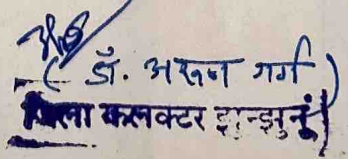 ( डॉ. अरुण गर्ग )
जिला कलक्टर झुन्झुनूं